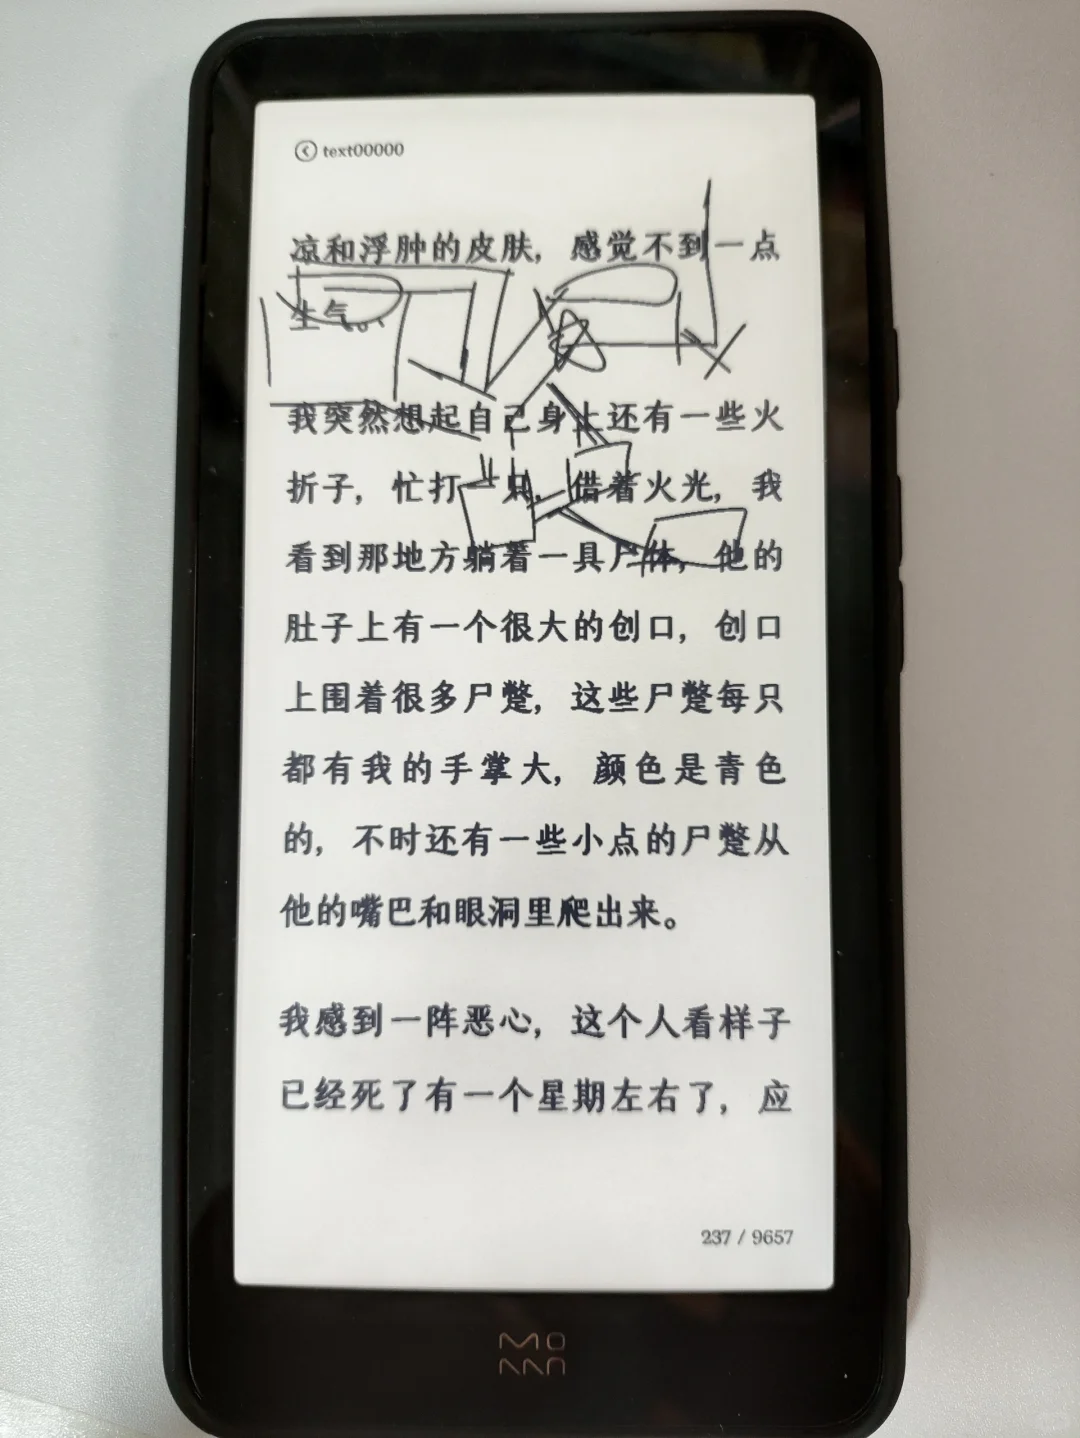 text00000
凉和浮肿的皮肤，感觉不到一点
生气。
我突然想起自己身上还有一些火
折子，忙打一只，借着火光，我
看到那地方躺着一具尸体，他的
肚子上有一个很大的创口，创口
上围着很多尸蹩，这些尸蹩每只
都有我的手掌大，颜色是青色
的，不时还有一些小点的尸蹩从
他的嘴巴和眼洞里爬出来。
我感到一阵恶心，这个人看样子
已经死了有一个星期左右了，应
237 / 9657
MO
AAN